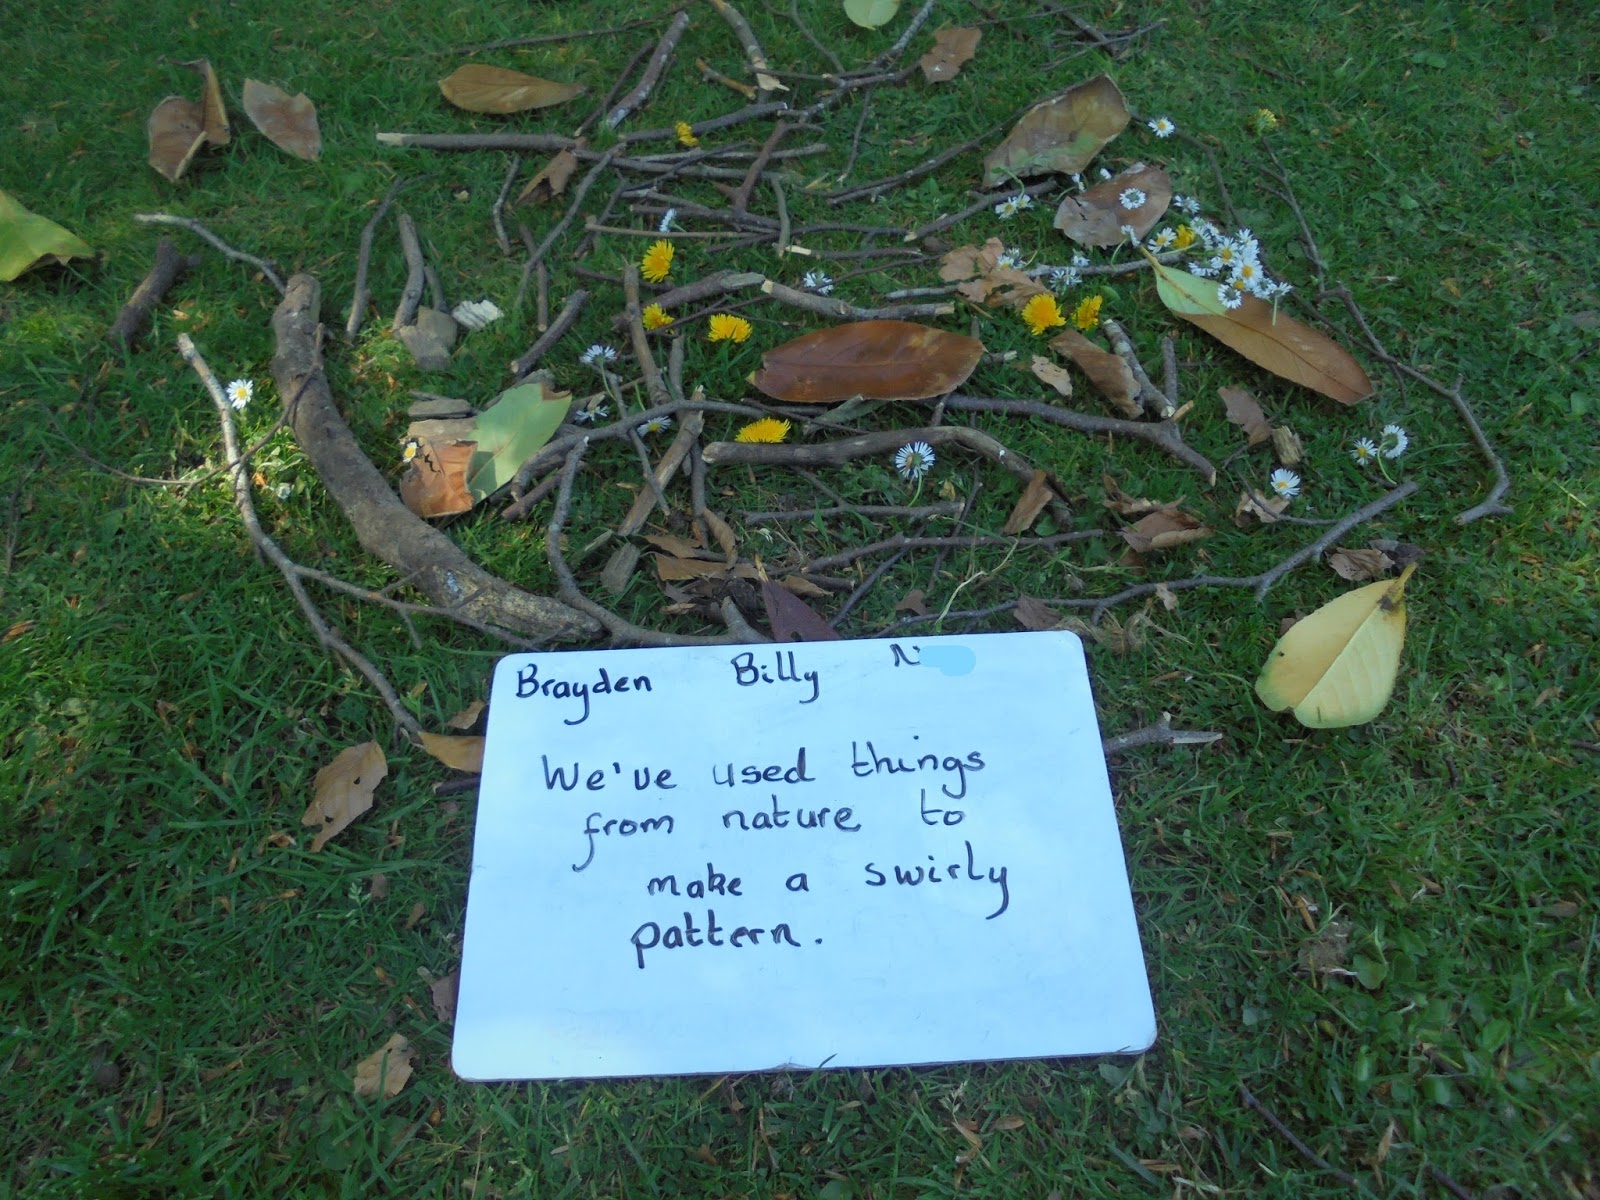 Brayden Billy
We've used things
from nature to
make a swirly
pattern.